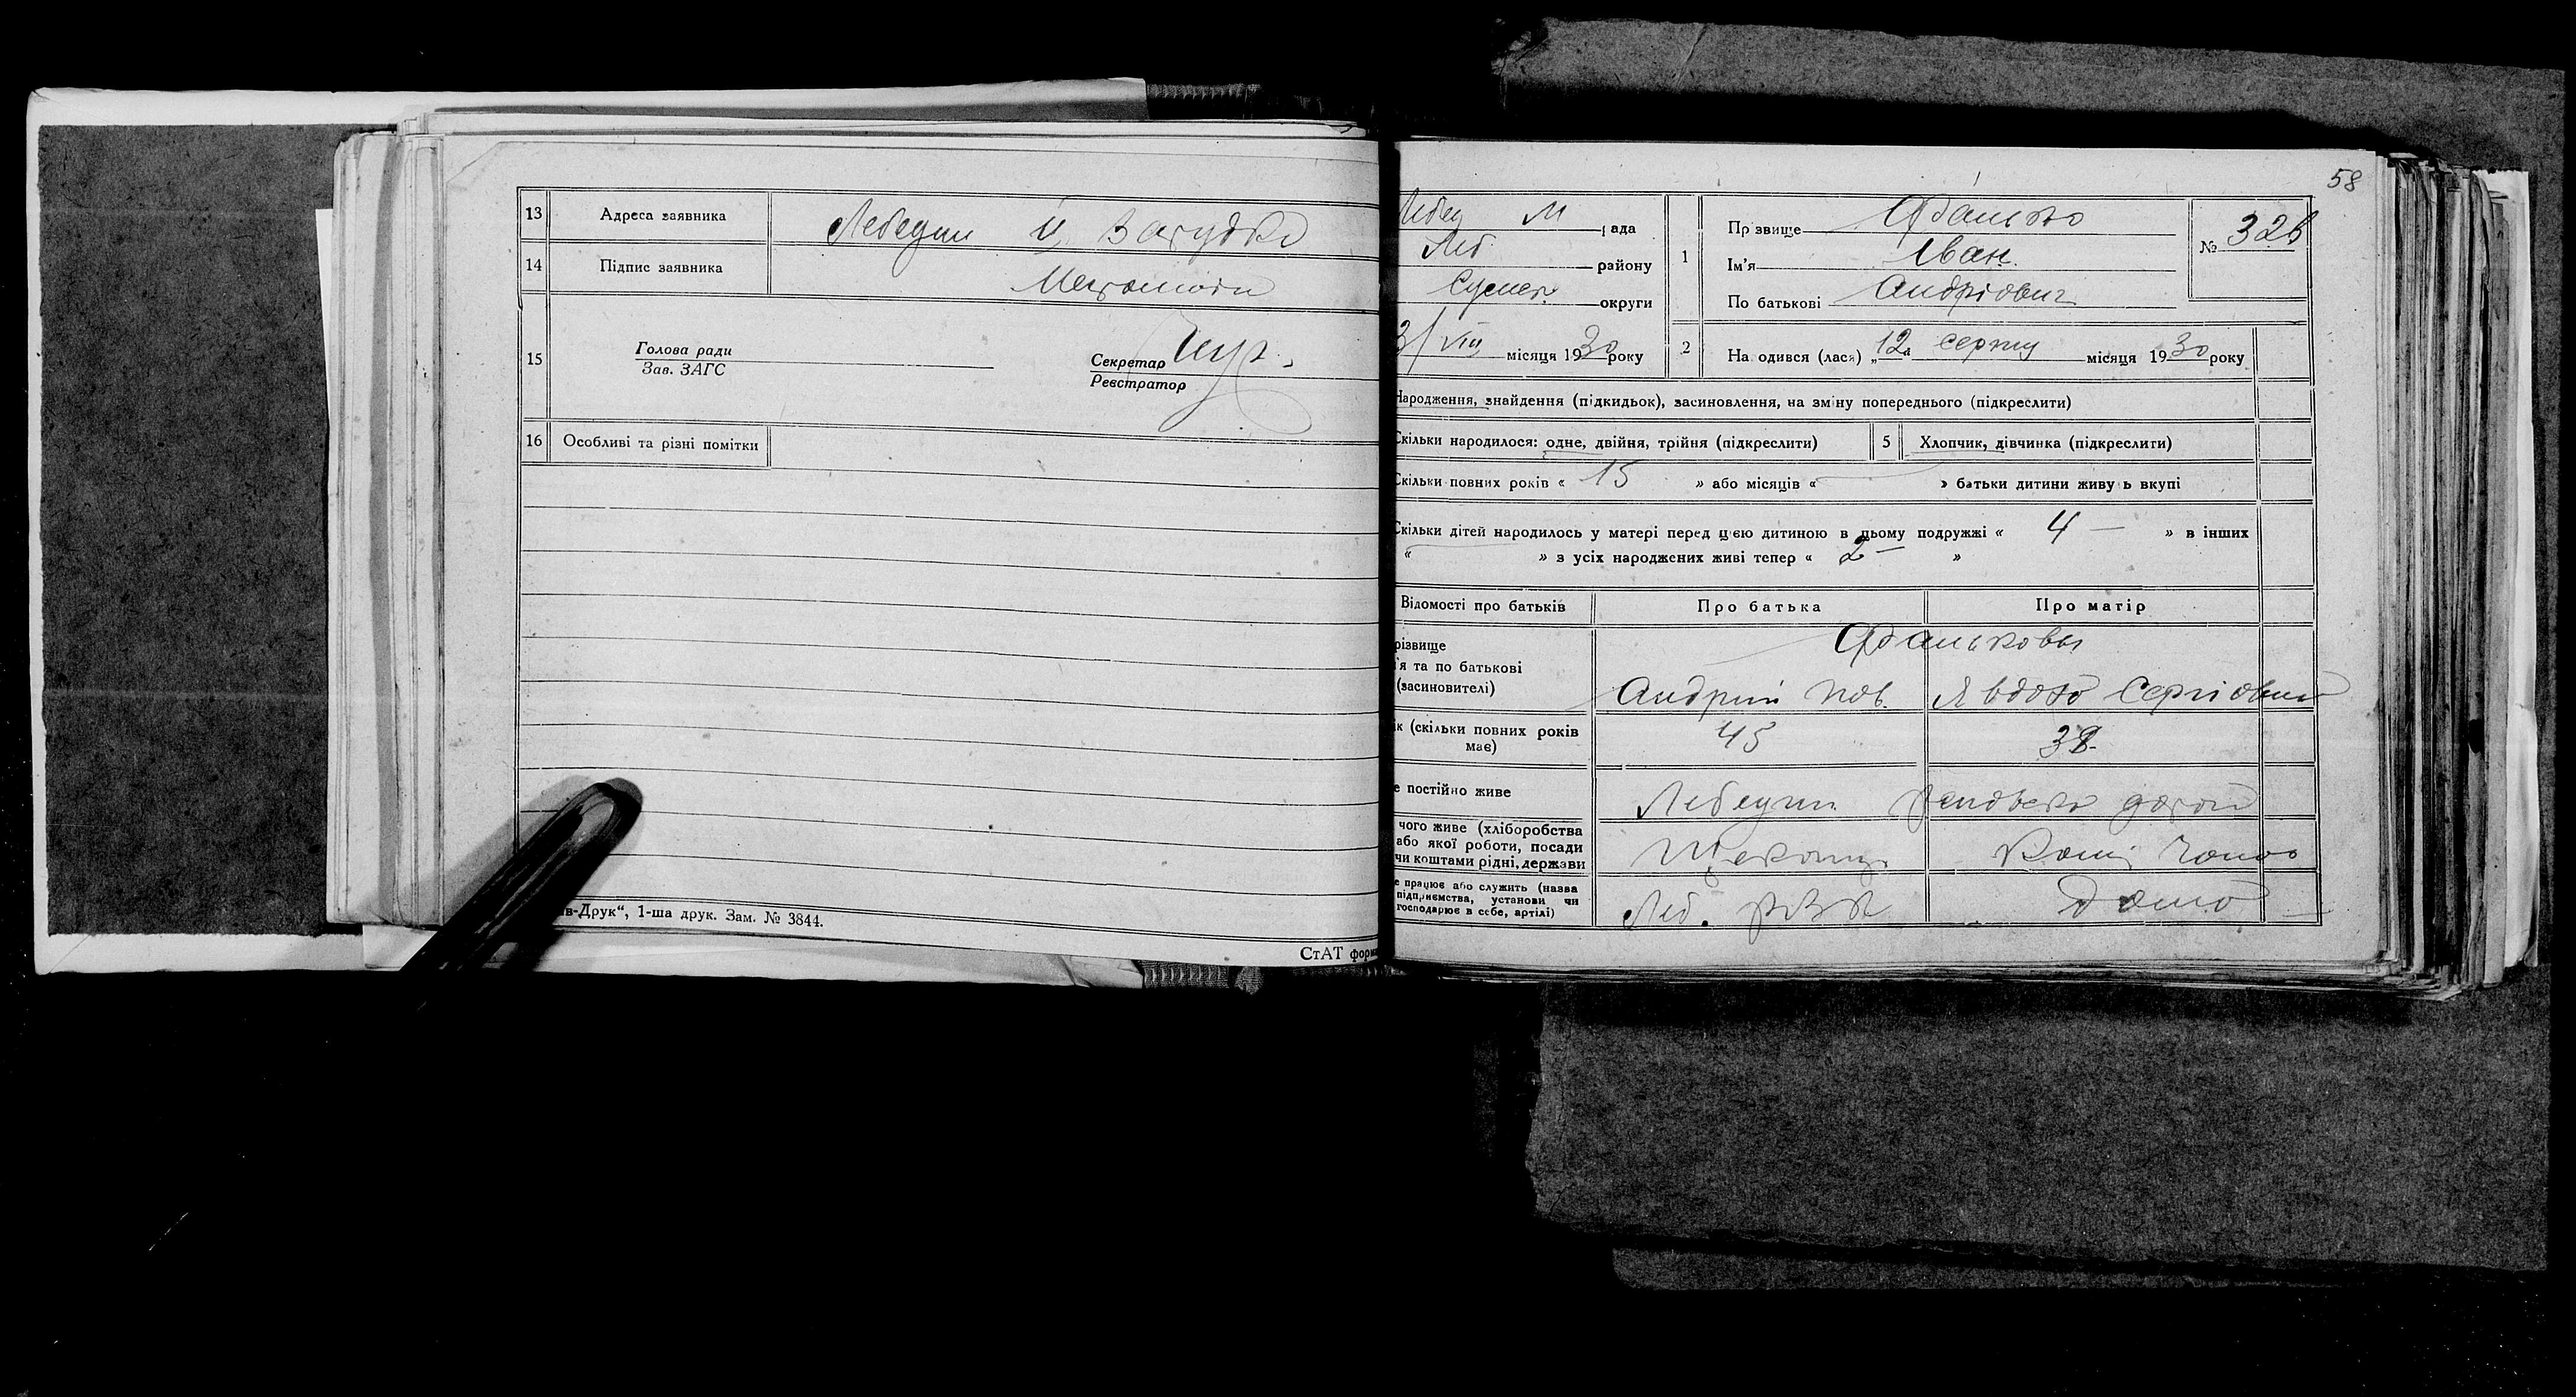 13 Адреса заявника Лебедин
14 Підпис заявника
15 Голова ради
Зав. ЗАГС
Секретар
Реєстратор
16 Особливі та різні помітки
в-Друк“, 1-ша друк. Зам. № 3844.
СтАТ форм
58
Лебед М рада
Леб району
Сумск округи
3/VIII місяця 1930 року
1 Прізвище Фалько
Ім'я Іван
По батькові Андріович
№ 326
2 Народився (лася) „12“ серпня місяця 1930 року
Народження, знайдення (підкидьок), засиновлення, на зміну попереднього (підкреслити)
Скільки народилося: одне, двійня, трійня (підкреслити) 5 Хлопчик, дівчинка (підкреслити)
Скільки повних років « 15 » або місяців « » батьки дитини живуть вкупі
Скільки дітей народилось у матері перед цією дитиною в цьому подружжі « 4 — » в інших
« » з усіх народжених живі тепер « 2 — »
Відомості про батьків Про батька Про матір
різвище
'я та по батькові
(засиновителі)
Фальковы
Андрій Пав. Явдоха Сергіовна
ік (скільки повних років
має)
45 38
е постійно живе Лебедин
чого живе (хліборобства
або якої роботи, посади
чи коштами рідні, держави
е працює або служить (назва
підприємства, установи чи
господарює в себе, артілі)
Леб. РВК Дома